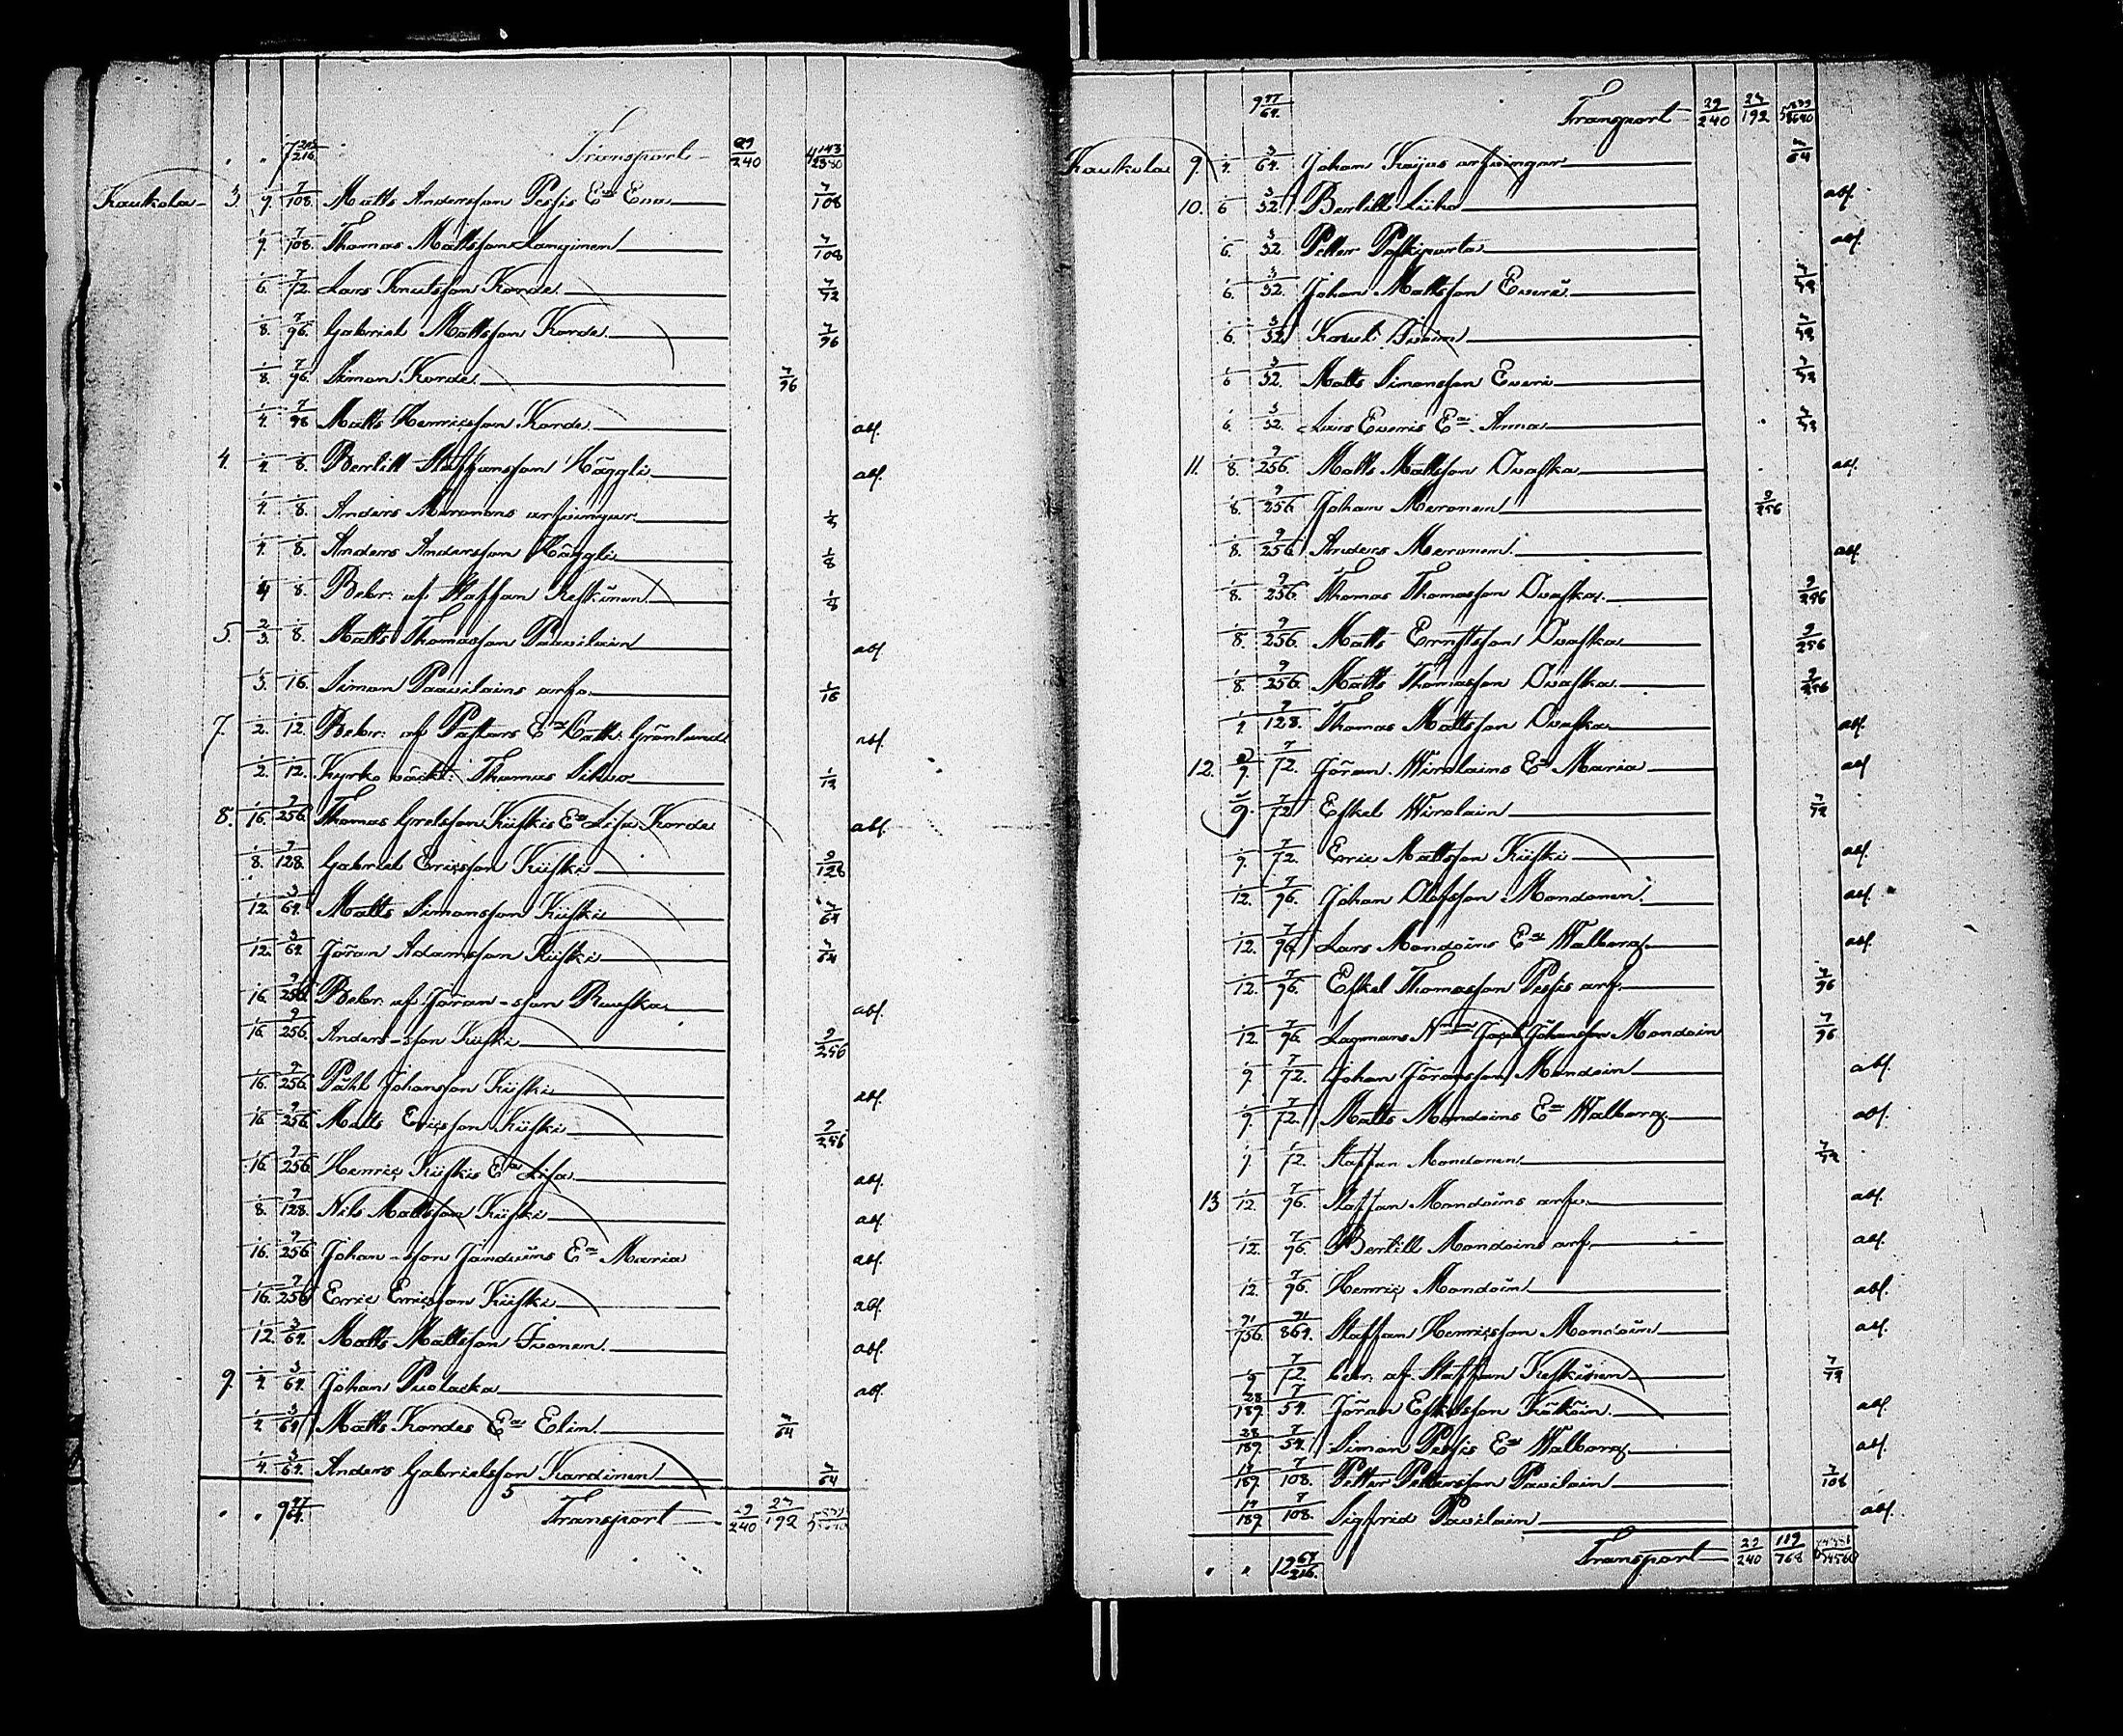 7 212/216 Transport 29/240 4 143/2380
Kaukola 3. 1/9. 7/108. Matts Andersson Pessis E:a Eva 7/108
1/9. 7/108. Thomas Mattsson Langinen 7/108
1/6. 7/72. Lars Knutsson Korde 7/72
1/8. 7/96. Gabriel Mattsson Korde 7/96
1/8. 7/96. Simon Korde 7/96
1/4. 7/98 Matts Henricsson Korde abl.
4. 1/4. 1/8. Bertill Staffansson Häggli abl.
1/4. 1/8. Anders Meronens arfvingar 1/8
1/4. 1/8. Anders Andersson Häggli 1/8
1/4 1/8. Bebr: af Staffan Keskinen 1/8
5. 2/3. 1/8. Matts Thomasson Paavilain abl
1/3. 1/16. Simon Paavilains arfv. 1/16
7. 1/2. 1/12. Bebr: af Pastors E:a Cath: Grönlund abl.
1/2. 1/12. Kyrkoväkt: Thomas Sihvo 1/12
8. 1/16. 9/256. Thomas Grelsson Kiiskis E:a Lisa Korde abl.
1/8. 9/128. Gabriel Ericsson Kiiski 9/128
1/12. 3/64. Matts Simonsson Kiiski 3/64
1/12. 3/64. Jöran Adamsson Kiiski 3/64
1/16. 9/256. Bebr. af Jöran-sson Ruuska abl.
1/16. 9/256. Anders-sson Kiiski 9/256
1/16. 9/256. Påhl Johansson Kiiski abl.
1/16. 9/256. Matts Ericsson Kiiski 9/256
1/16. 9/256. Henric Kiiskis E:a Lisa abl.
1/8. 9/128. Nils Mattsson Kiiski abl.
1/16. 9/256 Johan-sson Janduins E:a Maria abl.
1/16. 9/256 Eric Ericsson Kiiski abl.
1/12. 3/64. Matts Mattsson Ivonen. abl.
9. 1/4. 3/64. Johan Puolacka abl.
1/4. 3/64. Matts Kordes E:a Elin. 3/64
1/4. 3/64. Anders Gabrielsson Kardinen 3/64
Transport 29/240 27/192
9 47/64. Transport 29/240 27/192
Kaukola 9. 1/4. 3/64. Johan Kaijus arfvingar 3/64
10. 1/6 3/32. Bertill Liiho abl.
1/6. 3/32. Petter Paskiparta abl.
1/6. 3/32. Johan Mattsson Everi
1/6. 3/32. Knut Ivoin
1/6 3/32. Matts Simonsson Everi
1/6. 3/32. Lars Everis E:a Anna
11. 1/8. 9/256. Matts Mattsson Ovaska abl.
1/8. 9/256 Johan Meronen 9/256
1/8. 9/256 Anders Meronen abl.
1/8. 9/256. Thomas Thomasson Ovaska 9/256
1/8. 9/256. Matts Ernstsson Ovaska 9/256
1/8. 9/256. Matts Thomasson Ovaska 9/256
1/4. 9/128. Thomas Mattsson Ovaska abl.
12. 2/9. 7/72. Jöran Wirolains E:a Maria abl
9. 7/72 Eskel Wirolain 7/72
1/9. 7/72. Eric Mattsson Kiiski abl.
1/12. 7/96. Johan Olofsson Mondonen abl.
1/12. 7/96 Lars Mondoins E:a Walborg abl.
1/12. 7/96. Eskel Thomasson Pessis arf. 7/96
1/12 7/96. Johansson Mondoin 7/96
1/9. 7/72. Johan Jöransson Mondoin abl.
1/9. 7/72. Matts Mondoins E:a Walborg abl.
1/9 7/72. Staffan Mondonen 7/72
13 1/12. 7/96. Staffan Mondoins arfv. abl.
1/12. 7/96. Bertill Mondoins arf. abl.
1/12. 7/96. Henric Mondoin abl.
91/756. 91/864. Staffan Henricsson Mondoin abl.
1/9 7/72. bebr. af Staffan Keskinen 7/72
28/189. 7/54. Jöran Eskelsson Kököin abl.
28/189. 7/54. Simon Pessis E:a Walborg abl.
14/189. 7/108. Petter Pettersson Pavilain 7/108
14/189 7/108. Sigfrid Pavilain abl.
12 64/216. Transport 29/240 119/768